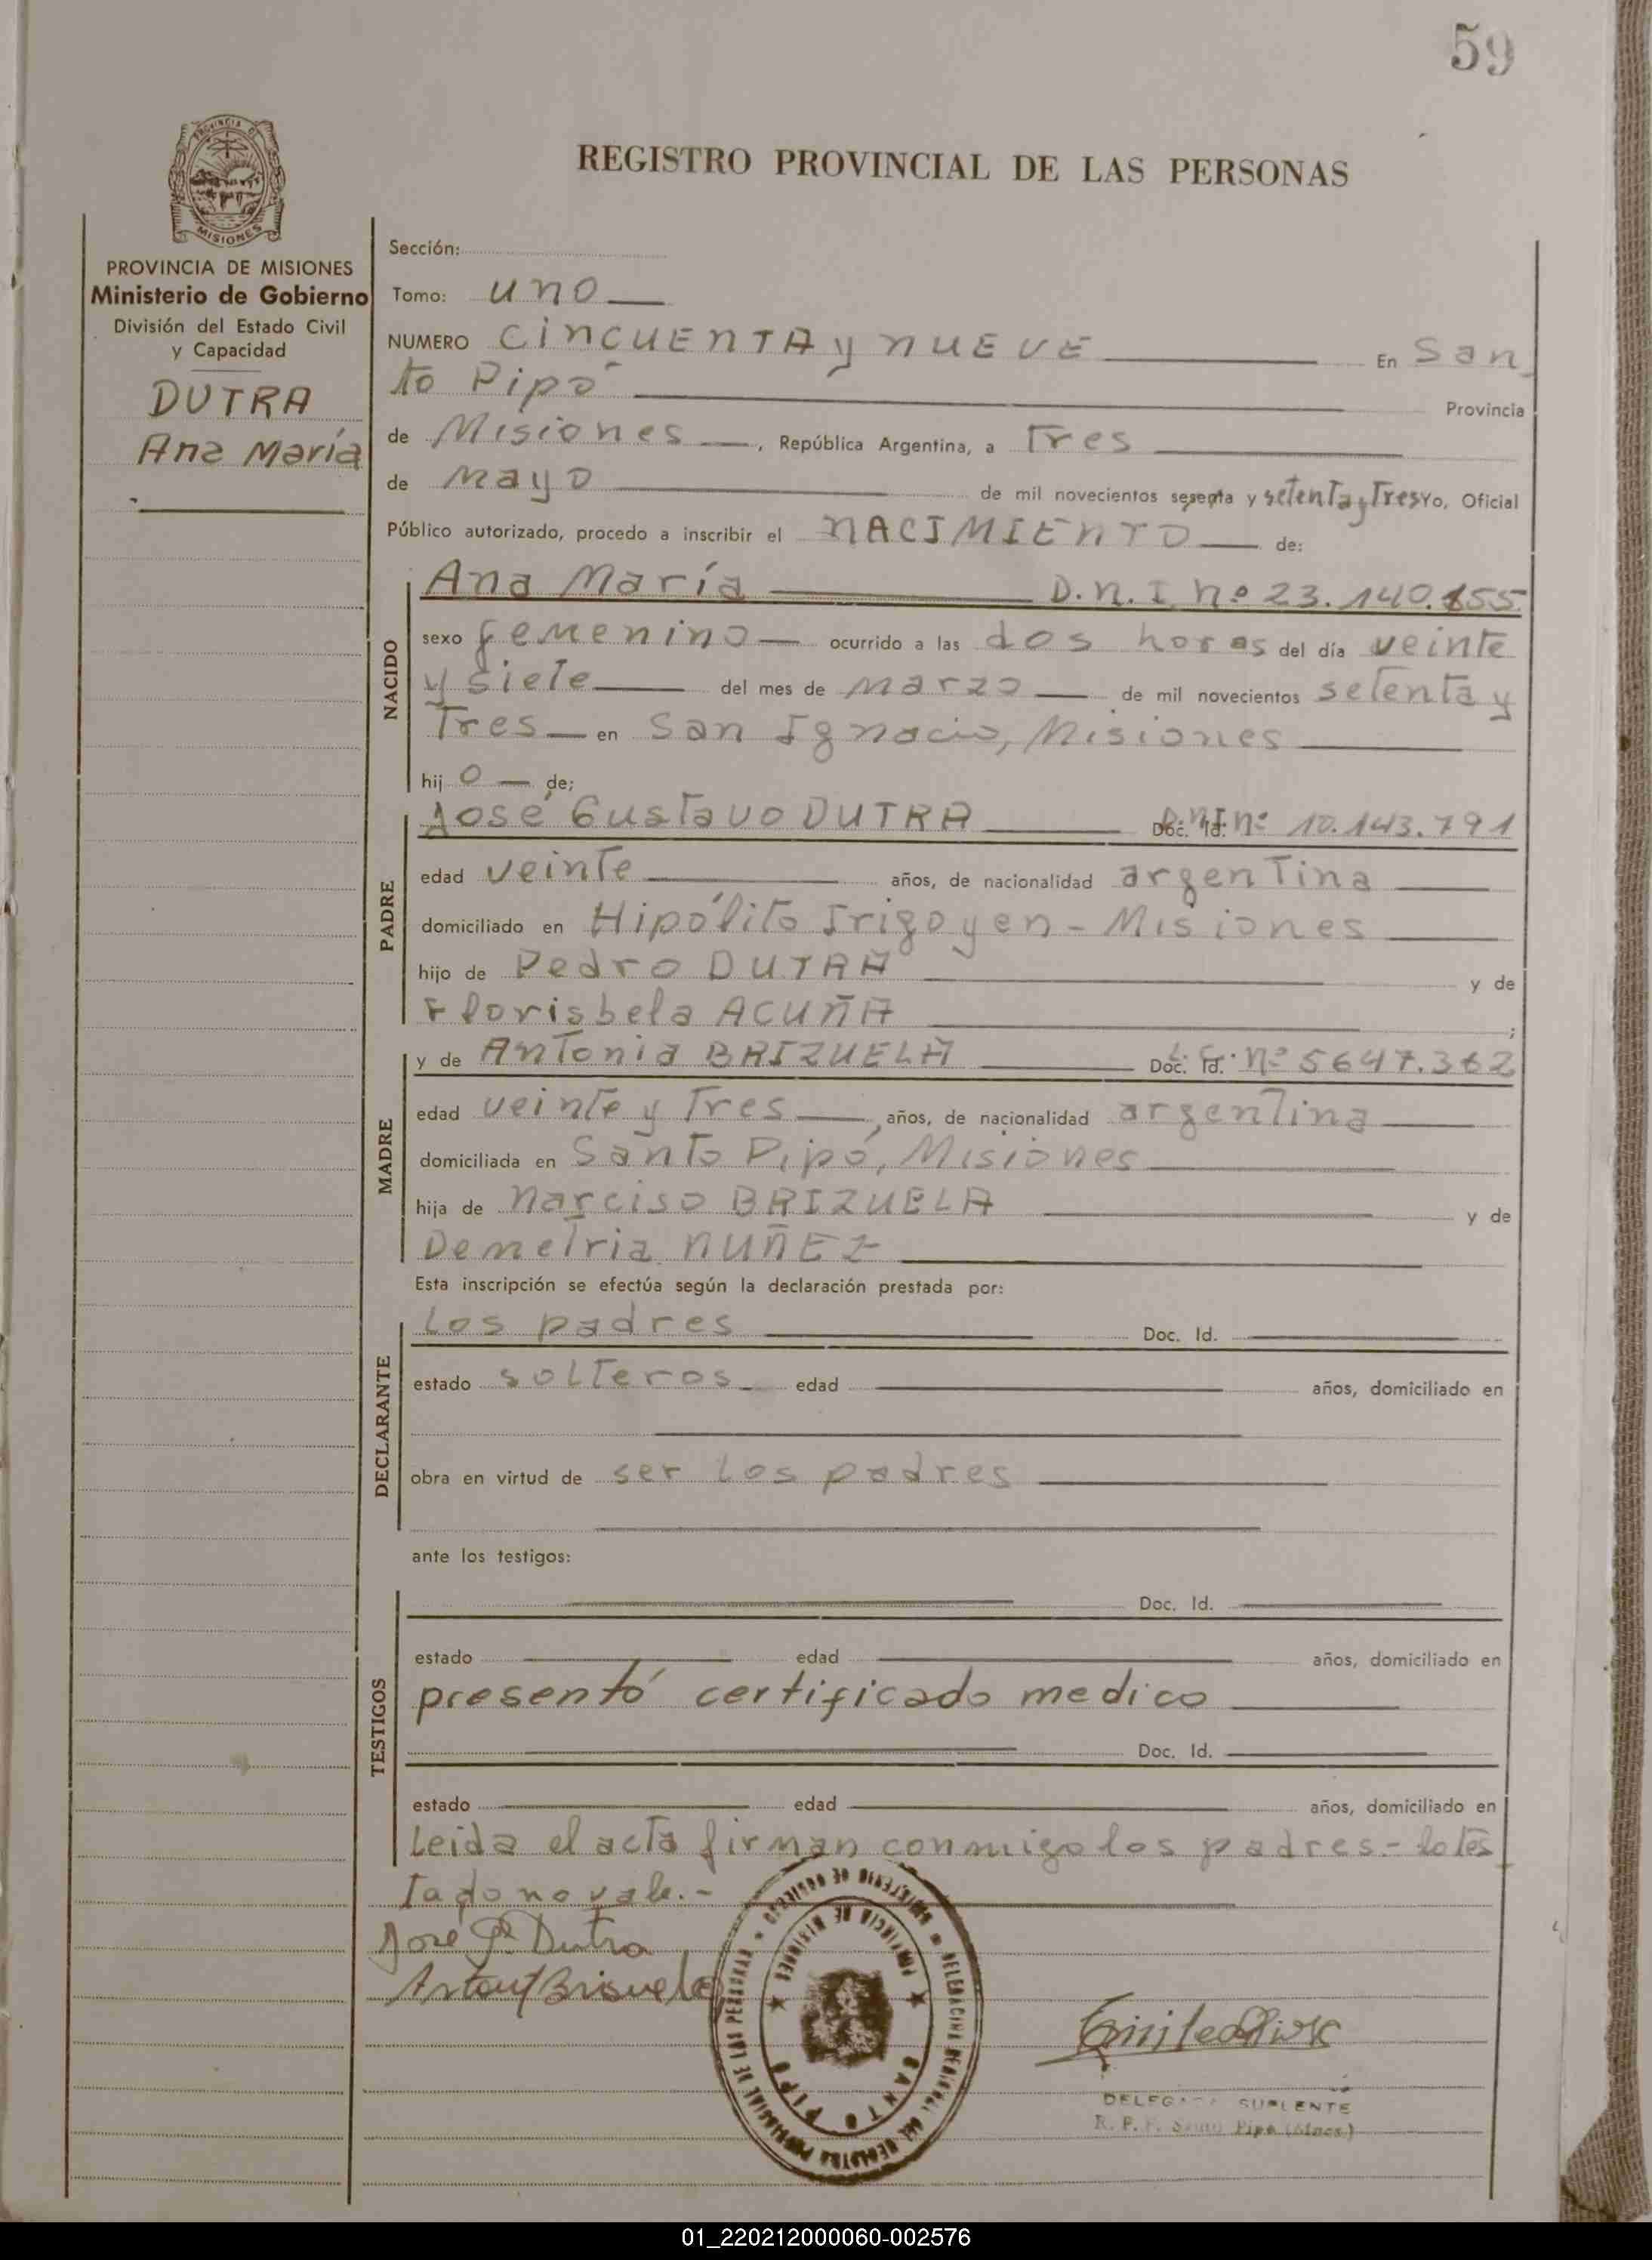 59
REGISTRO PROVINCIAL DE LAS PERSONAS
PROVINCIA DE
MISIONES
PROVINCIA DE MISIONES
Ministerio de Gobierno
División del Estado Civil
y Capacidad
DUTRA
Ana María
Sección:
Tomo: uno
NUMERO CINCUENTA y NUEVE En San
to Pipó Provincia
de Misiones, República Argentina, a Tres
de mayo de mil novecientos sesenta y setenta y Tres Yo, Oficial
Público autorizado, procedo a inscribir el NACIMIENTO de:
NACIDO
Ana María D.N.I. nº 23.140.855
sexo femenino ocurrido a las dos horas del día veinte
y siete del mes de marzo de mil novecientos setenta y
Tres en San Ignacio, Misiones
hij o de;
PADRE
José Gustavo DUTRA Doc. Id. D.N.I. nº 10.143.791
edad veinte años, de nacionalidad argentina
domiciliado en Hipólito Irigoyen - Misiones
hijo de Pedro DUTRA y de
Florisbela ACUÑA ;
MADRE
y de Antonia BRIZUELA Doc. Id. L.C. nº 5647.362
edad veinte y Tres años, de nacionalidad argentina
domiciliada en Santo Pipó, Misiones
hija de Narciso BRIZUELA y de
Demetria NUÑEZ
Esta inscripción se efectúa según la declaración prestada por:
DECLARANTE
Los padres Doc. Id.
estado solteros edad años, domiciliado en
obra en virtud de ser los padres
ante los testigos:
TESTIGOS
Doc. Id.
estado edad años, domiciliado en
presentó certificado medico
Doc. Id.
estado edad años, domiciliado en
Leida el acta firman conmigo los padres.- lo tes
tado no vale.-
José Dutra
Brisuela
MINISTERIO DE GOBIERNO
PROVINCIA DE MISIONES
SANTO PIPÓ
DELEGADO SUPLENTE
R. P. P. Santo Pipó (Mnes)
01_220212000060-002576